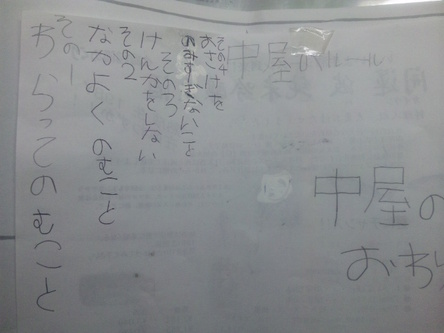 中屋ルール
その4
おさけを
のみすぎないこと
その3
けんかをしない
その2
なかよくのむこと
その1
わらってのむこと
中屋の
おわ